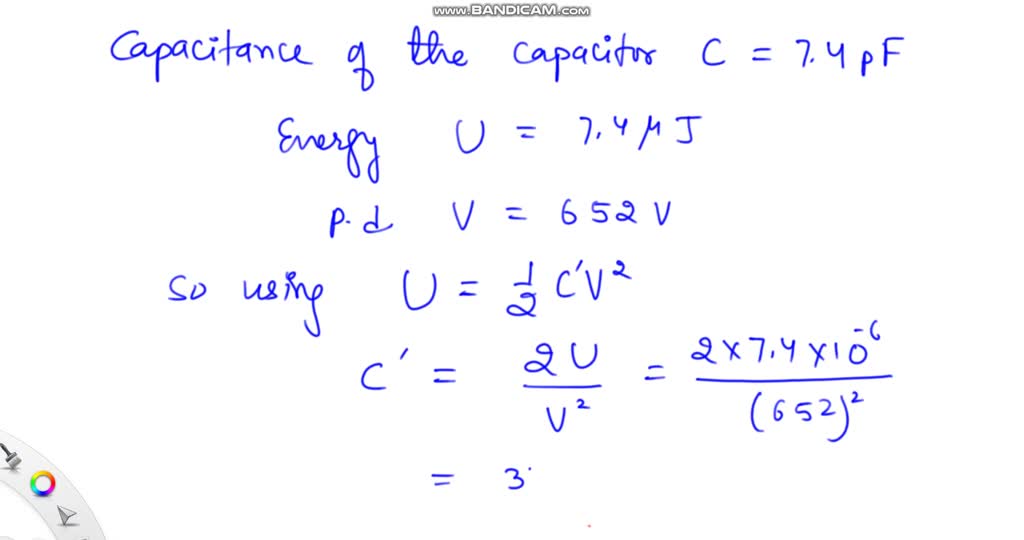 www.BANDICAM.com
Capacitance of the capacitor C = 7.4 pF
Energy U = 7.4 μ J
P.d V = 652 V
So using U = 1/2 C'V²
C' = 2U/V² = 2×7.4×10⁻⁶/(652)²
= 3.